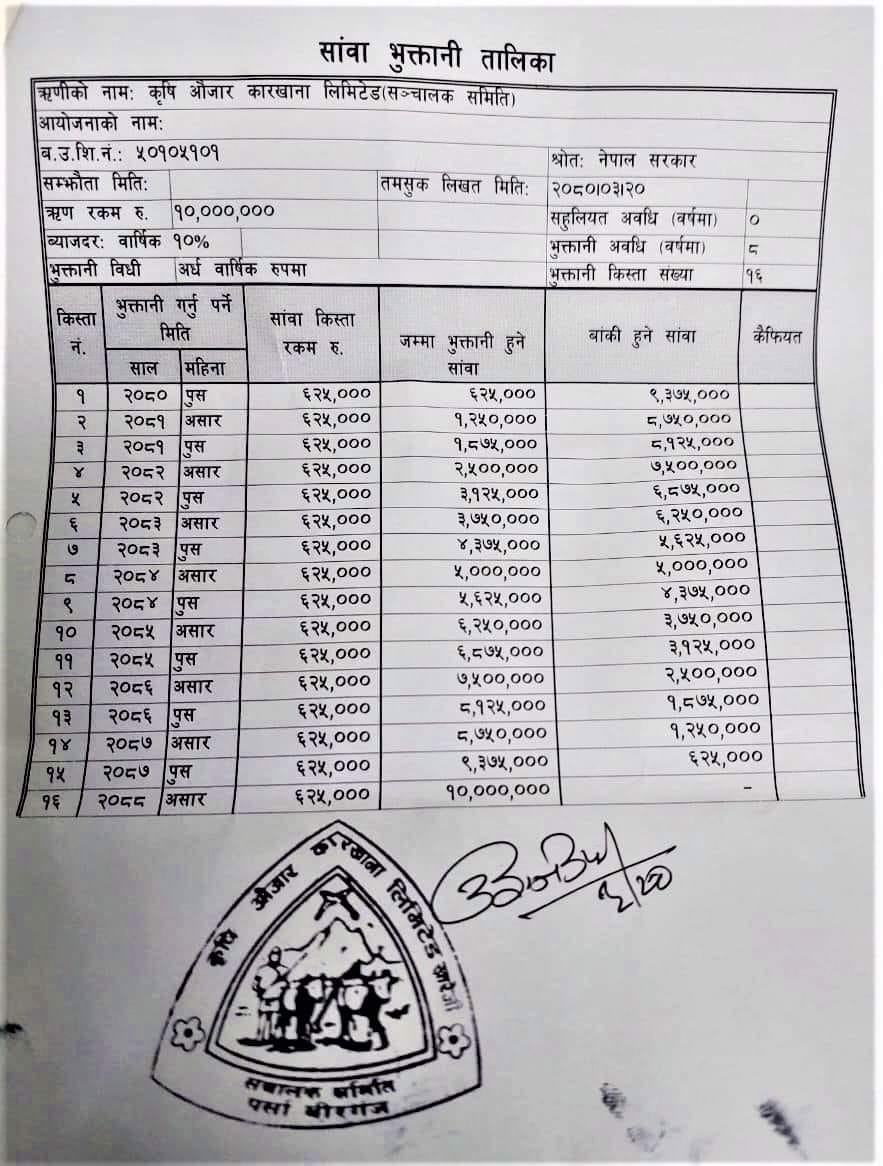 सांवा भुक्तानी तालिका
ऋणीको नाम: कृषि औजार कारखाना लिमिटेड(सञ्चालक समिति)
आयोजनाको नाम:
ब.उ.शि.नं.: ५०१०५१०१ श्रोत: नेपाल सरकार
सम्झौता मिति: तमसुक लिखत मिति: २०८०।०३।२०
ऋण रकम रु. १०,०००,००० सहुलियत अवधि (वर्षमा) ०
ब्याजदर: वार्षिक १०% भुक्तानी अवधि (वर्षमा) ८
भुक्तानी विधी अर्ध वार्षिक रुपमा भुक्तानी किस्ता संख्या १६
किस्ता नं. भुक्तानी गर्नु पर्ने मिति सांवा किस्ता रकम रु. जम्मा भुक्तानी हुने सांवा बांकी हुने सांवा कैफियत
साल महिना
१ २०८० पुस ६२५,००० ६२५,००० ९,३७५,०००
२ २०८१ असार ६२५,००० १,२५०,००० ८,७५०,०००
३ २०८१ पुस ६२५,००० १,८७५,००० ८,१२५,०००
४ २०८२ असार ६२५,००० २,५००,००० ७,५००,०००
५ २०८२ पुस ६२५,००० ३,१२५,००० ६,८७५,०००
६ २०८३ असार ६२५,००० ३,७५०,००० ६,२५०,०००
७ २०८३ पुस ६२५,००० ४,३७५,००० ५,६२५,०००
८ २०८४ असार ६२५,००० ५,०००,००० ५,०००,०००
९ २०८४ पुस ६२५,००० ५,६२५,००० ४,३७५,०००
१० २०८५ असार ६२५,००० ६,२५०,००० ३,७५०,०००
११ २०८५ पुस ६२५,००० ६,८७५,००० ३,१२५,०००
१२ २०८६ असार ६२५,००० ७,५००,००० २,५००,०००
१३ २०८६ पुस ६२५,००० ८,१२५,००० १,८७५,०००
१४ २०८७ असार ६२५,००० ८,७५०,००० १,२५०,०००
१५ २०८७ पुस ६२५,००० ९,३७५,००० ६२५,०००
१६ २०८८ असार ६२५,००० १०,०००,००० -
कृषि औजार कारखाना लिमिटेड खारेजी
सञ्चालक समिति
पर्सा बीरगंज